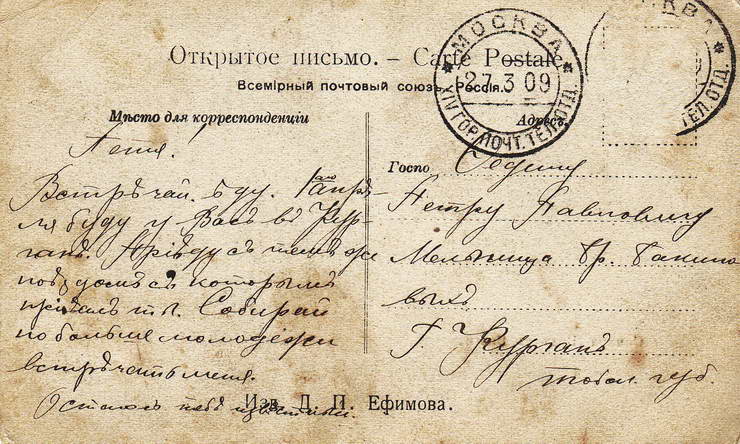 Открытое письмо. – Carte Postale
Всемірный почтовый союзъ. Россія.
МОСКВА
27.3 09
XIV ГОР. ПОЧТ. ТЕЛ. ОТД.
МОСКВА
ТЕЛ. ОТД.
Мѣсто для корреспонденціи
Адресъ.
Петя.
Встрѣчай. ѣду. апрѣ-
ля буду у Васъ въ Кур-
ганѣ. Пріѣду съ темъ же
поѣздомъ съ которымъ
пріѣхалъ ты. Собирай
побольше молодежи
встрѣчать меня.
Остаюсь
Госпо
Петру Павловичу
Мельница Бр.
выхъ
Г Курганъ
Тобол. губ.
Изд. Д. П. Ефимова.